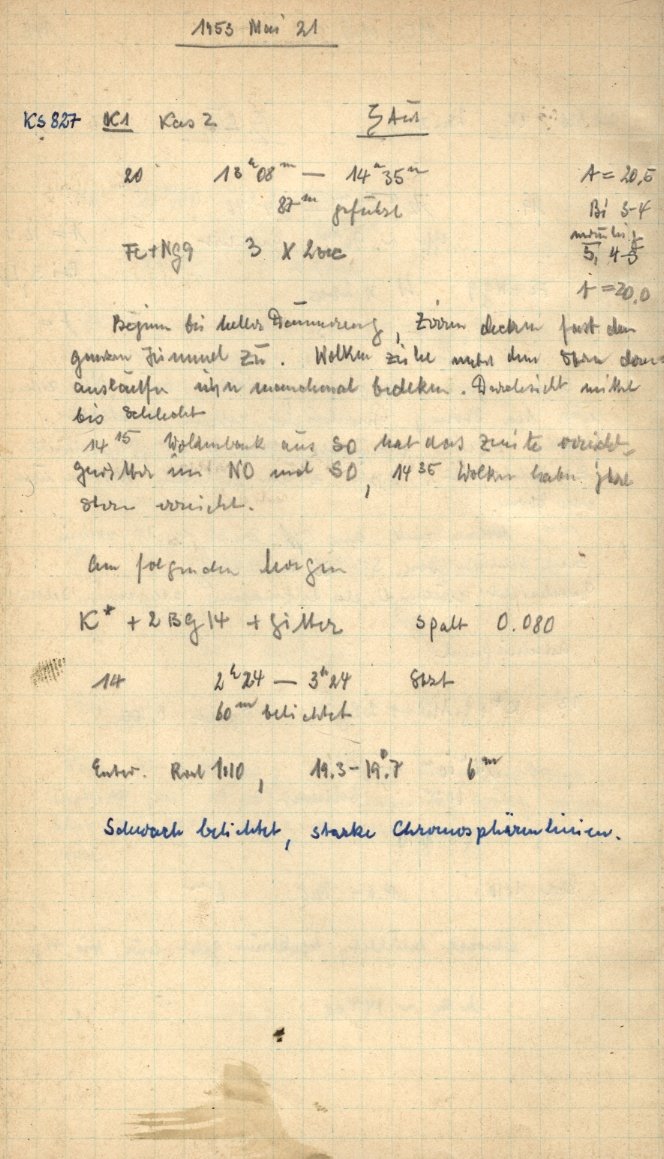 1953 Mai 21
KS 827 K1 Kas 2 ζ Aur
20 13ʰ08ᵐ — 14ʰ35ᵐ A = 20,5
87ᵐ geführt Bi 3-4
Fe + Ng 9 3 X 2 sec 5, 4-5
A = 20,0
Beginn bei heller Dämmerung, Zirren decken fast den
ganzen Himmel zu. Wolken dem Stern
ausläufer ihn manchmal bedecken. Durchsicht mittel
bis schlecht
14 15 Wolkenbank aus SO hat das Zenite erreicht,
Gewitter im NO und SO, 14 35 Wolken haben jetzt
Stern erreicht.
Am folgenden Morgen
K* + 2 BG 14 + Gitter Spalt 0.080
14 2ʰ24 — 3ʰ24
60ᵐ belichtet
Entw. Rod 1:10, 19.3 – 19.°7 6ᵐ
Schwach belichtet, starke Chromosphärenlinien.